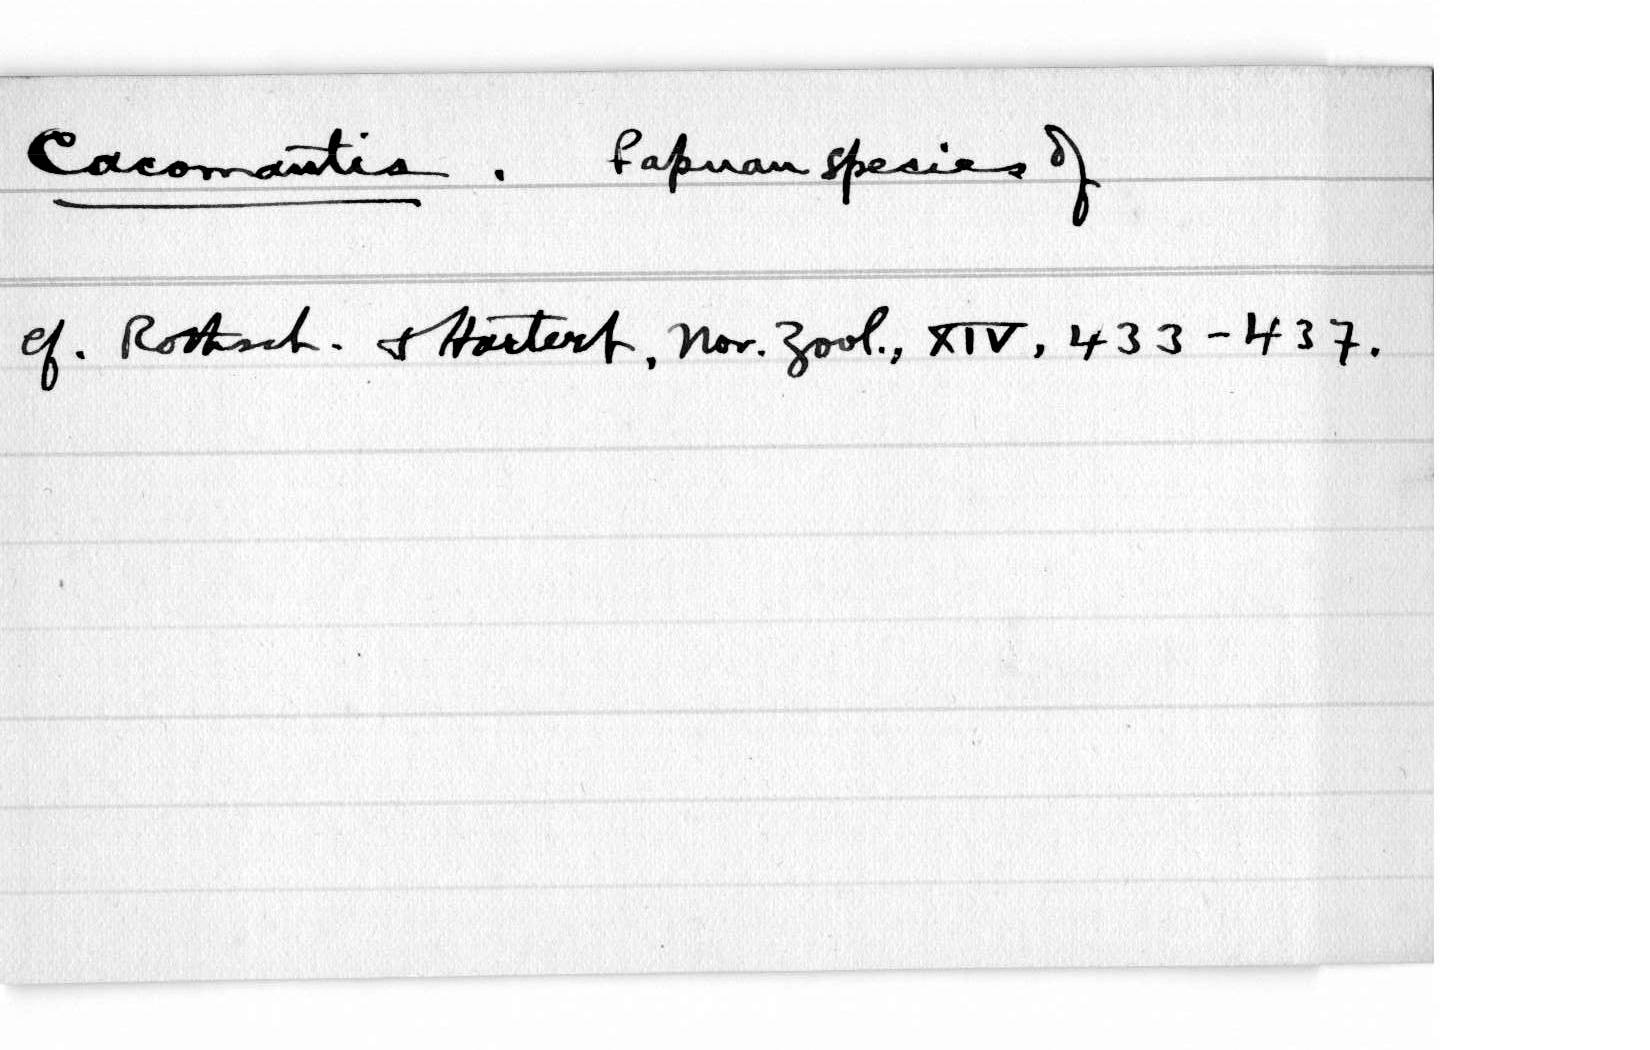 Cacomantis. Papuan species of
cf. Rothsch. & Hartert, Nov. Zool., XIV, 433-437.